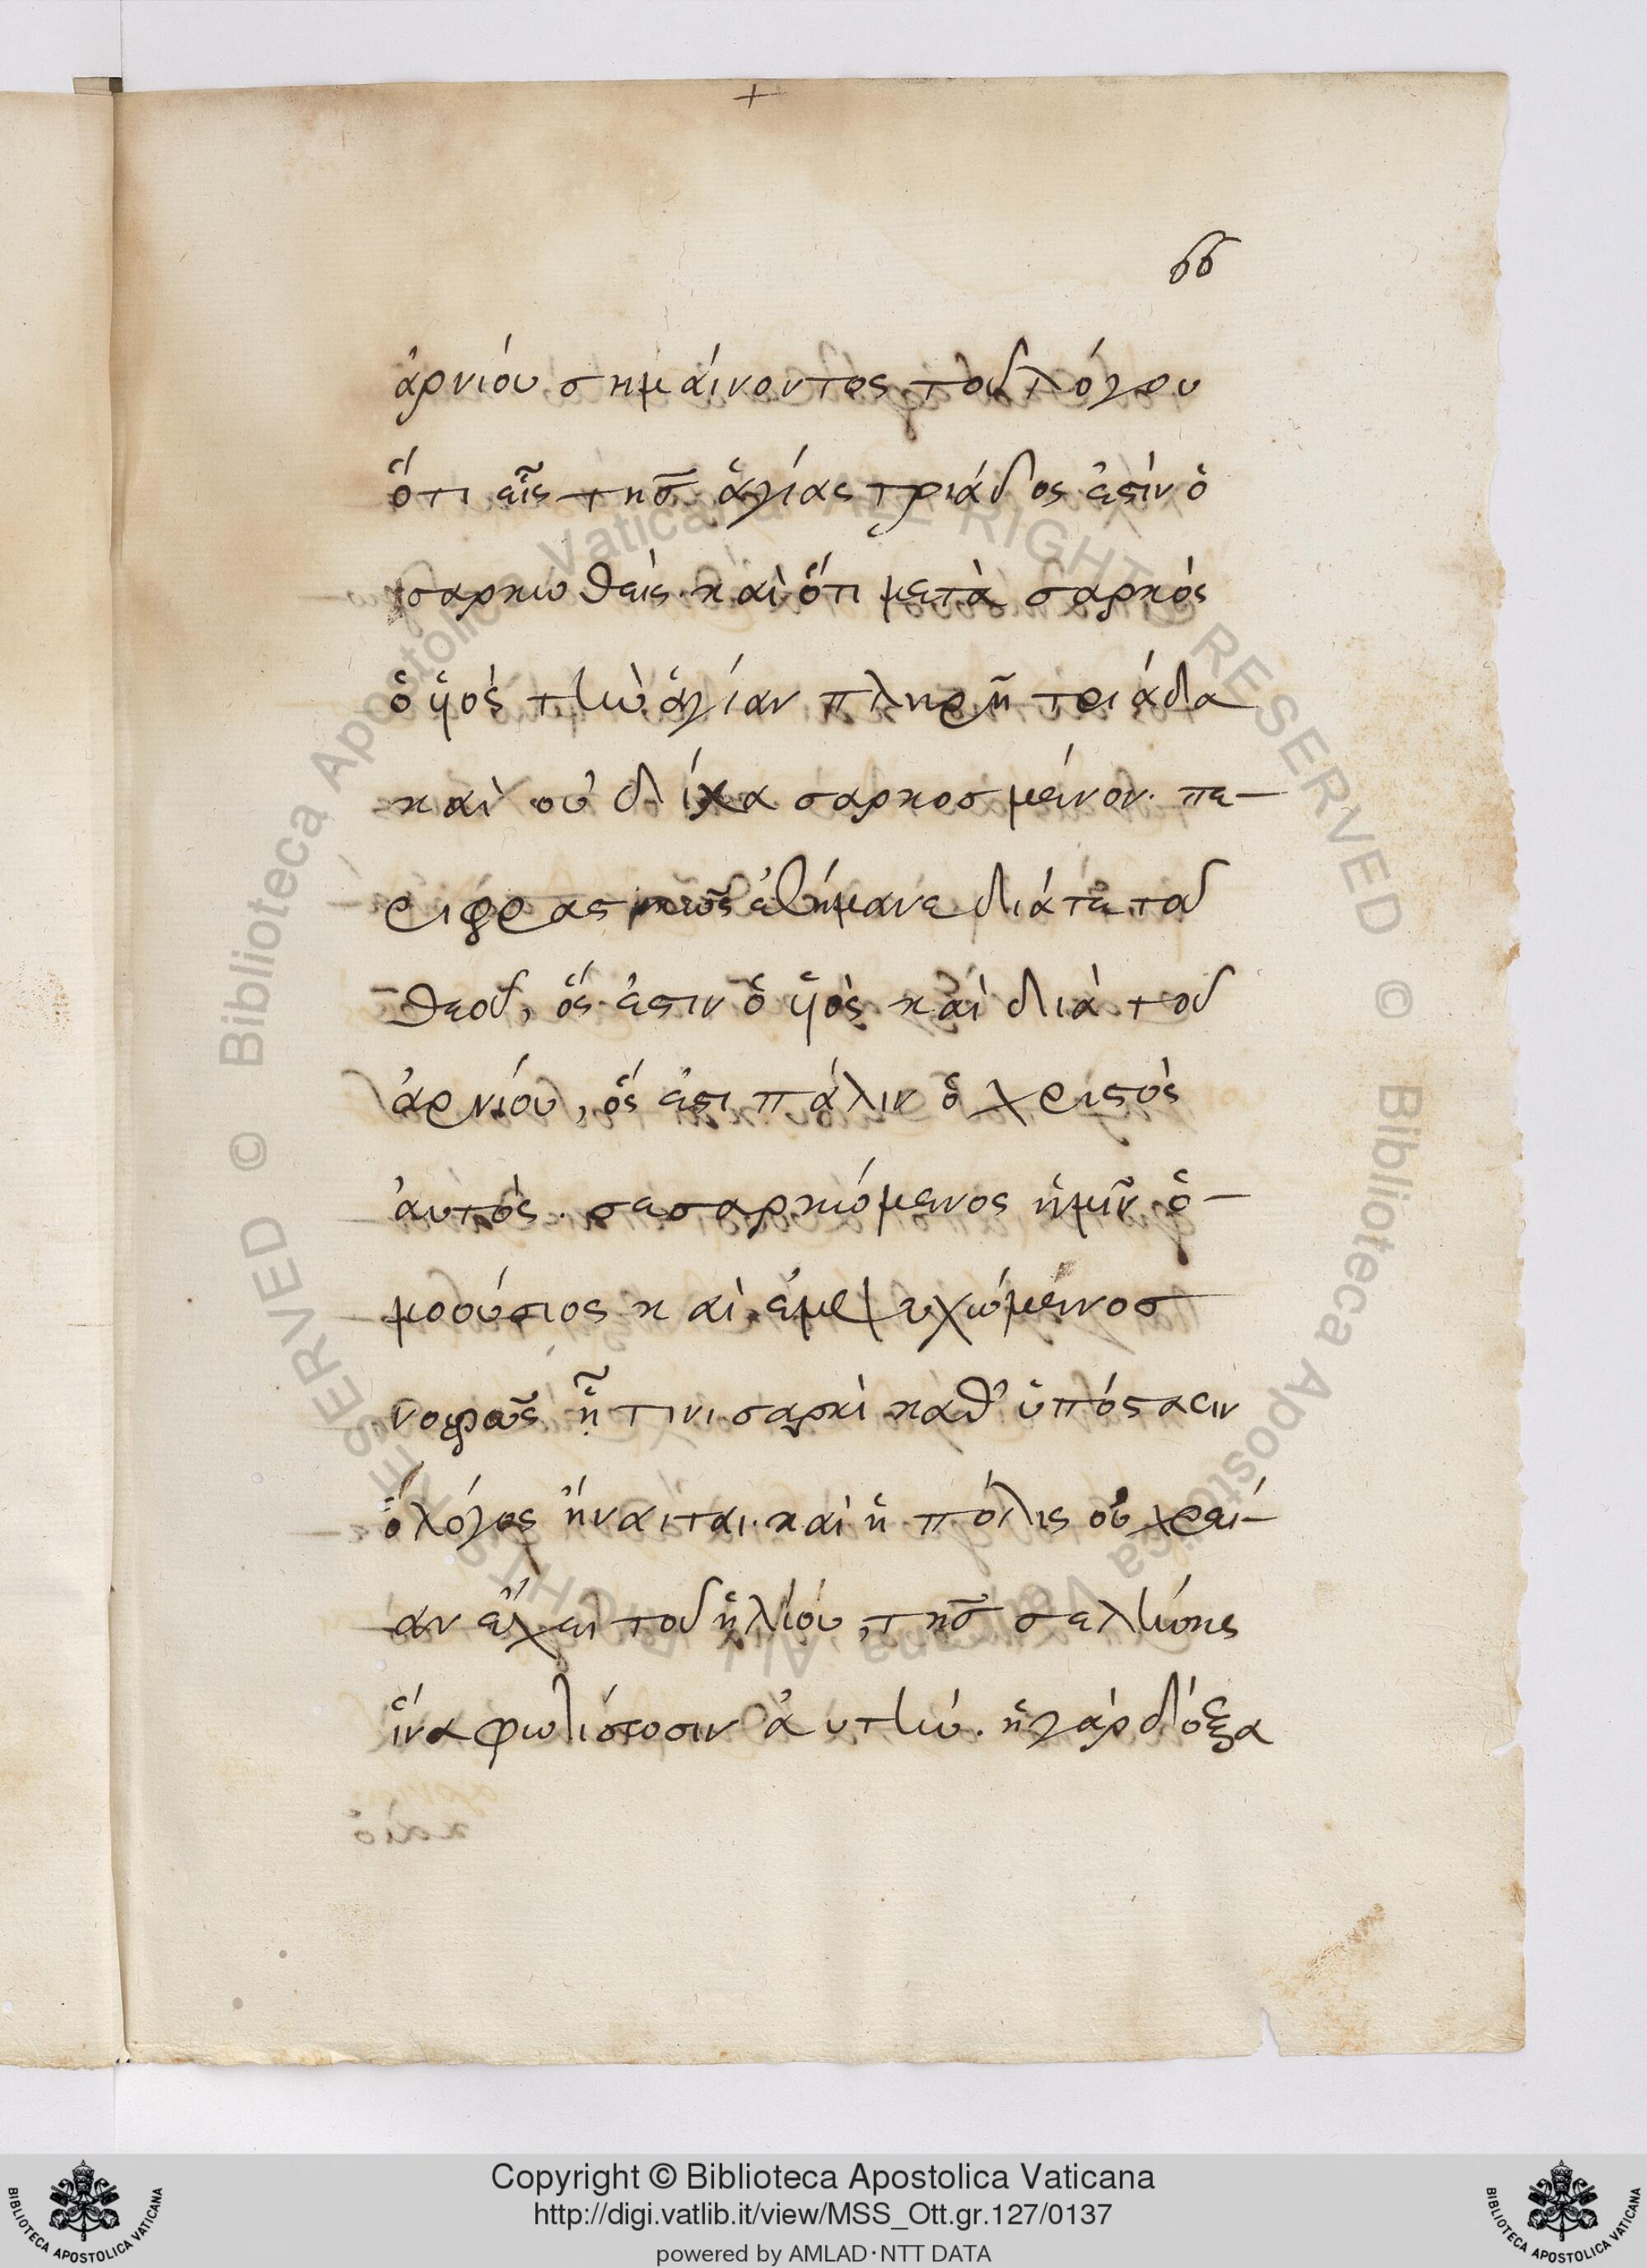 66
ἀρνίου σημαίνοντος τοῦ λόγου
ὅτι εἷς τῆσ ἁγίας τριάδος ἐστὶν ὁ
σαρκωθεὶς καὶ ὅτι μετὰ σαρκὸς
ὁ ὑιὸς τὴν ἁγίαν πληρῆ τριάδα
καὶ οὐ δίχα σαρκοσ μένον. πε–
ριφραστικῶς ἐσήμανε διά τε τοῦ
θεοῦ, ὅς ἐστιν ὁ ὑιὸς καὶ διὰ τοῦ
ἀρνίου, ὅς ἐστι πάλιν ὁ χριστὸς
ἀυτὸς. σεσαρκώμενος ἡμῖν ὁ–
μοούσιος καὶ ἐμψυχώμένοσ
νοερῶς ᾗ τινι σαρκὶ καθ' ὑπόστασιν
ὁ λόγος ἥνωται. καὶ ἡ πόλις οὐ χρεί–
αν ἔχει τοῦ ἡλίου, τῆσ σελήνης
ἵνα φωτίσωσιν ἀυτήν. ἡ γὰρ δόξα
Copyright © Biblioteca Apostolica Vaticana
http://digi.vatlib.it/view/MSS_Ott.gr.127/0137
powered by AMLAD·NTT DATA
BIBLIOTECA APOSTOLICA VATICANA
BIBLIOTECA APOSTOLICA VATICANA
© Biblioteca Apostolica Vaticana ALL RIGHTS RESERVED © Biblioteca Apostolica Vaticana ALL RIGHTS RESERVED